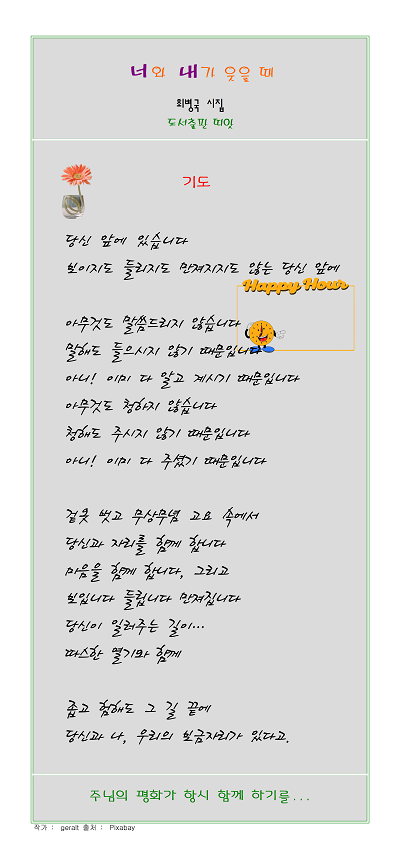 너와 내가 웃을 때
최병국 시집
도서출판 띠앗
기도
당신 앞에 있습니다
보이지도 들리지도 만져지지도 않는 당신 앞에
Happy Hour
아무것도 말씀드리지 않습니다
말해도 들으시지 않기 때문입니다
아니! 이미 다 알고 계시기 때문입니다
아무것도 청하지 않습니다
청해도 주시지 않기 때문입니다
아니! 이미 다 주셨기 때문입니다
겉옷 벗고 무상무념 고요 속에서
당신과 자리를 함께 합니다
마음을 함께 합니다, 그리고
보입니다 들립니다 만져집니다
당신이 일러주는 길이...
따스한 열기와 함께
좁고 험해도 그 길 끝에
당신과 나, 우리의 보금자리가 있다고.
주님의 평화가 항시 함께 하기를...
작가 : geralt 출처 : Pixabay